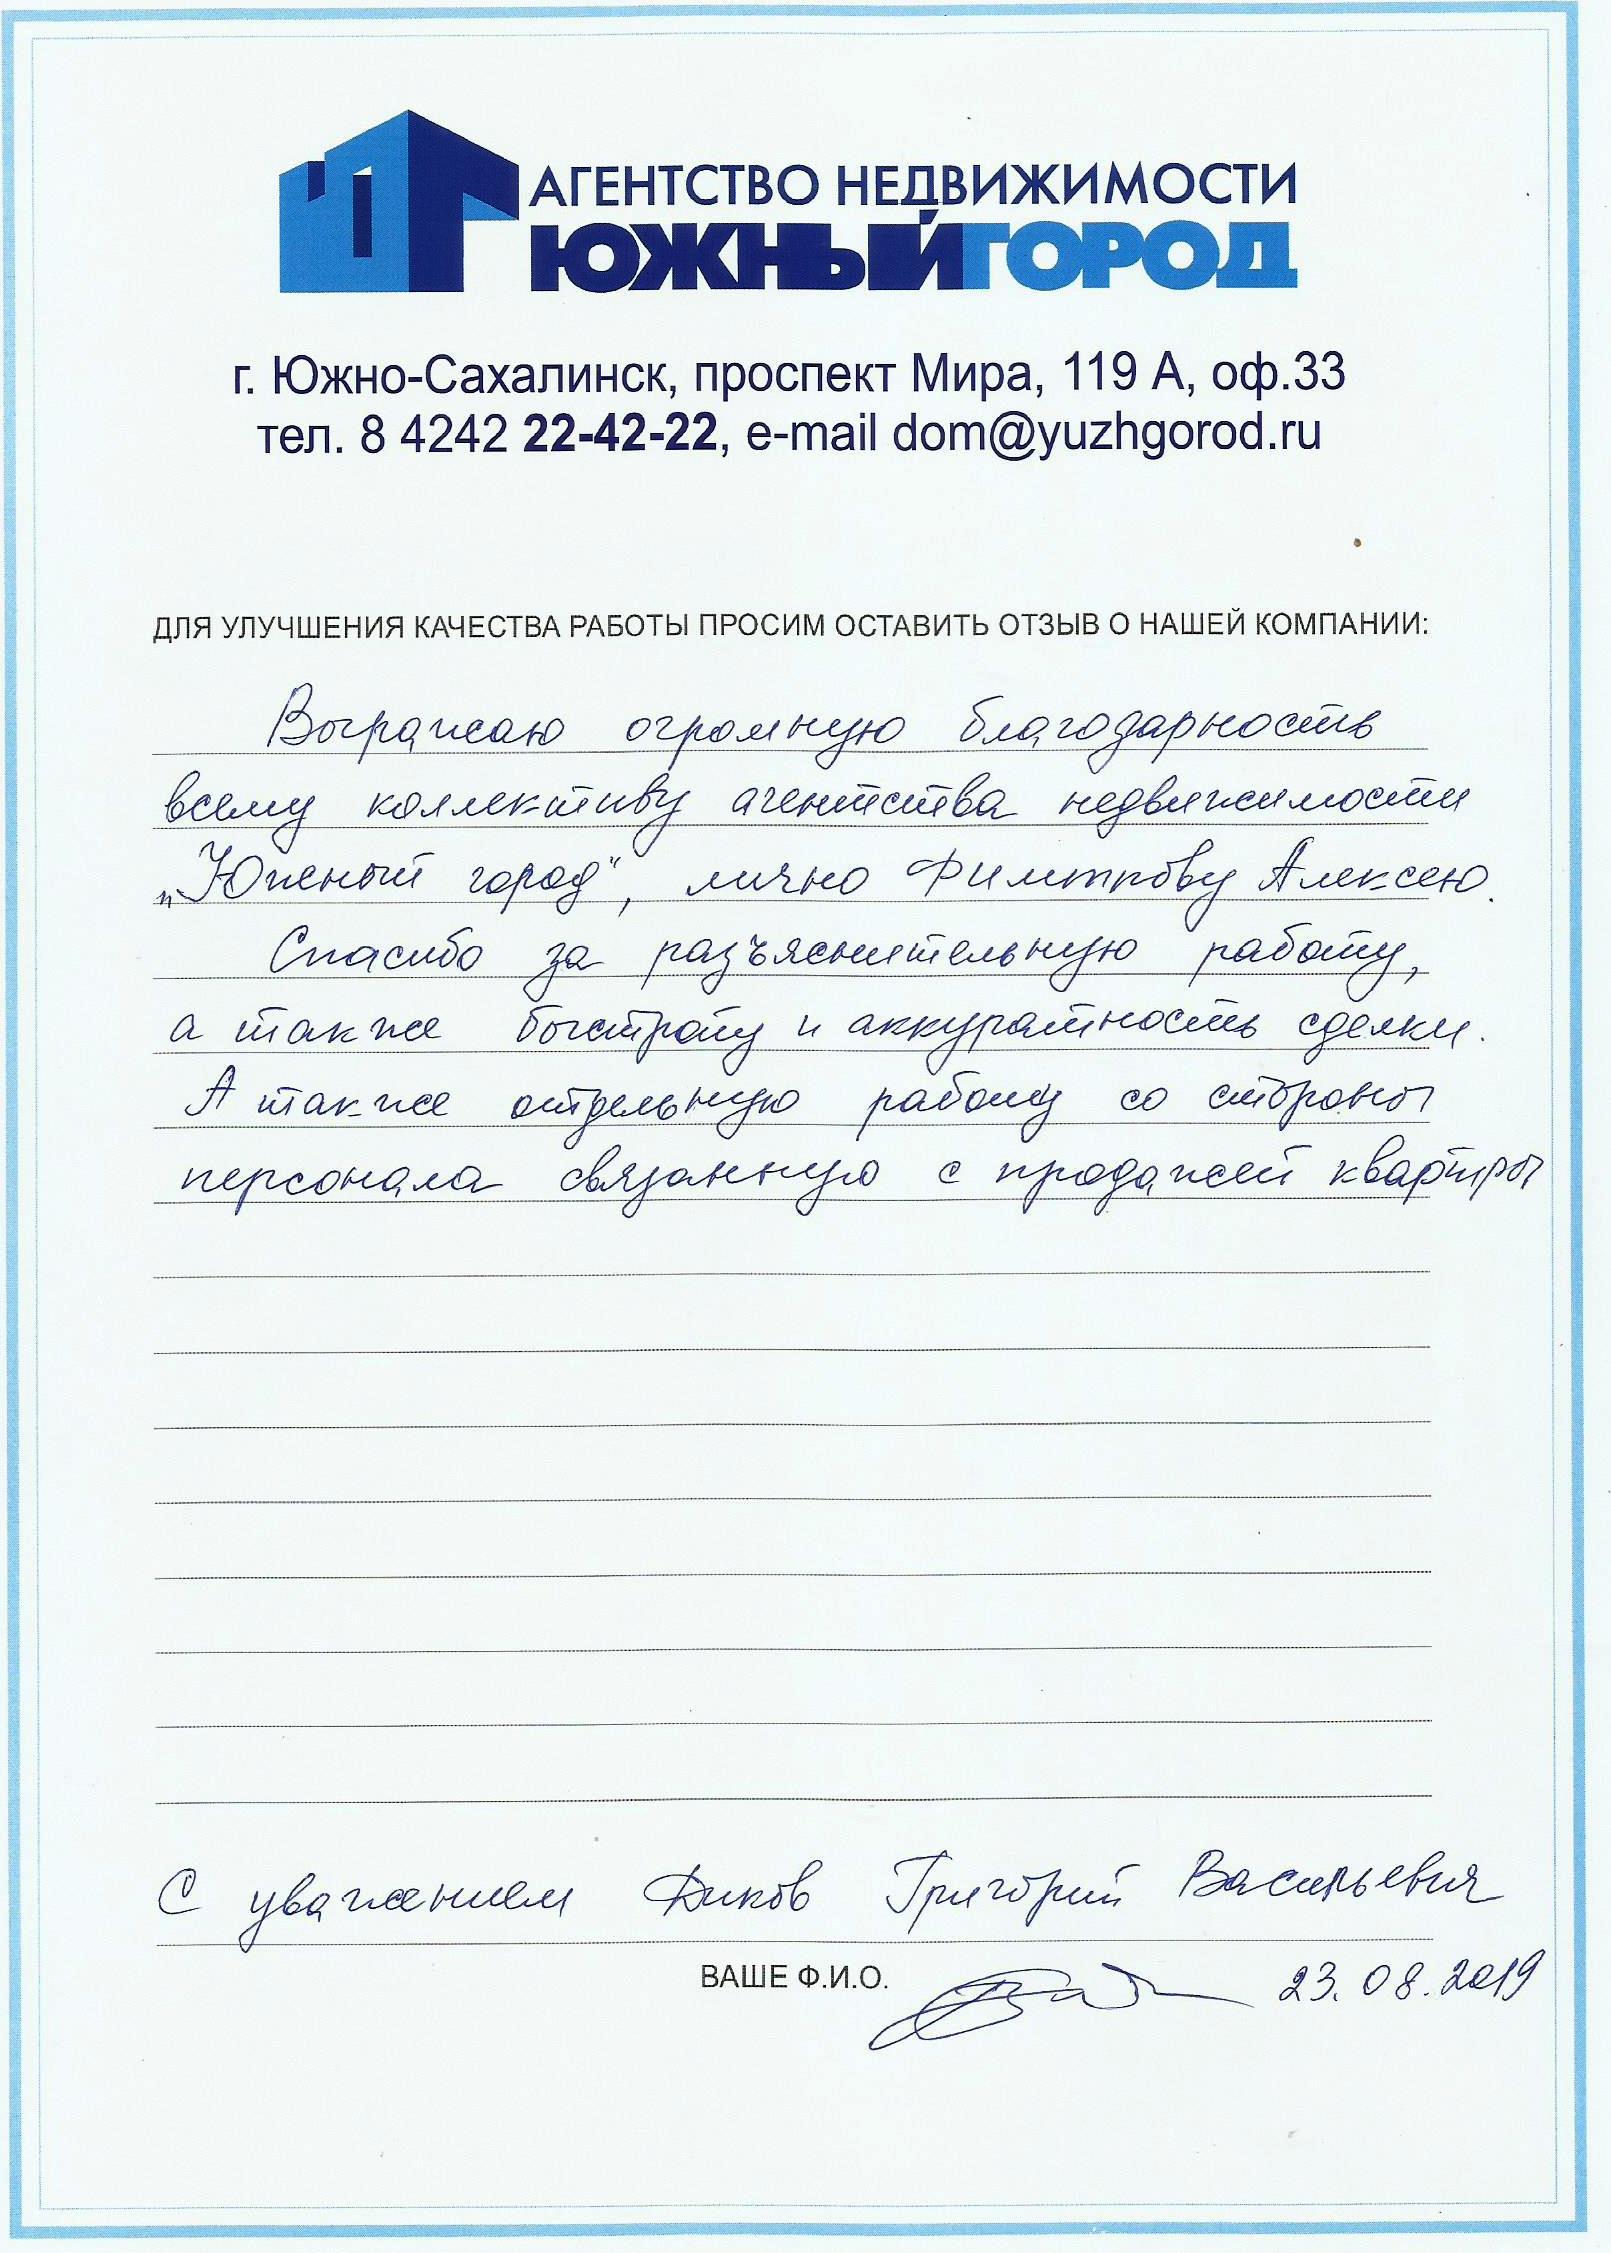 АГЕНТСТВО НЕДВИЖИМОСТИ
ЮЖНЫЙГОРОД
г. Южно-Сахалинск, проспект Мира, 119 А, оф.33
тел. 8 4242 22-42-22, e-mail dom@yuzhgorod.ru
ДЛЯ УЛУЧШЕНИЯ КАЧЕСТВА РАБОТЫ ПРОСИМ ОСТАВИТЬ ОТЗЫВ О НАШЕЙ КОМПАНИИ:
Выражаю огромную благодарность
всему коллективу агентства недвижимости
„Южный город", лично Алексею.
Спасибо за разъяснительную работу,
а также быстроту и аккуратность сделки.
А также отдельную работу со стороны
персонала связанную с продажей квартиры
С уважением Диков Григорий Васильевич
ВАШЕ Ф.И.О.
23.08.2019